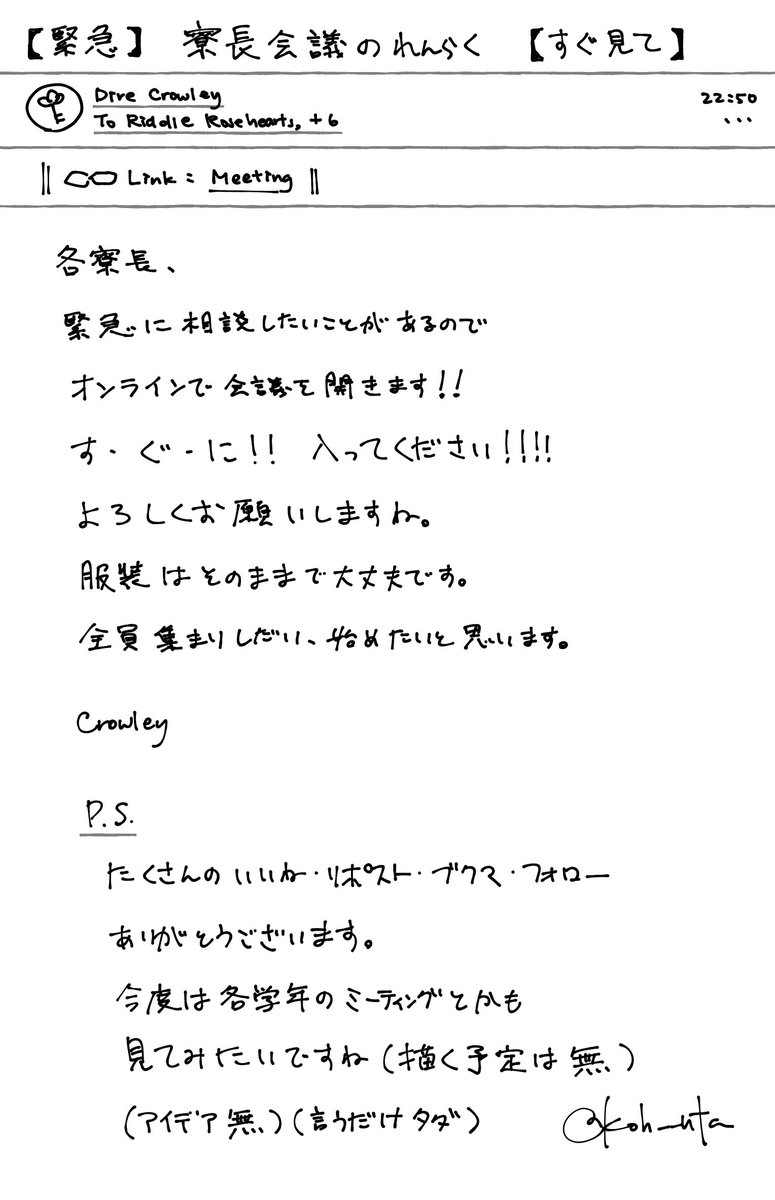 【緊急】 寮長会議のれんらく 【すぐ見て】
Dire Crowley
22:50
To Riddle Rosehearts, +6
...
Link: Meeting
各寮長、
緊急に相談したいことがあるので
オンラインで会議を開きます!!
す・ぐ・に!! 入ってください!!!!
よろしくお願いしますね。
服装はそのままで大丈夫です。
全員集まりしだい、始めたいと思います。
Crowley
P.S.
たくさんのいいね・リポスト・ブクマ・フォロー
ありがとうございます。
今度は各学年のミーティングとかも
見てみたいですね(描く予定は無、)
(アイデア無、)(言うだけタダ)
@koh_uta